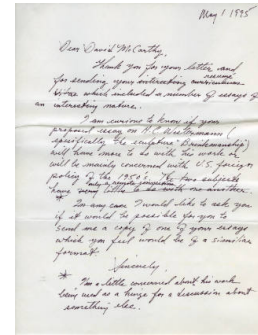 May 1 1995
Dear David McCarthy,
Thank you for your letter and
for sending your interesting resume
which included a number of essays of
an interesting nature.
I am curious to know if your
proposed essay on H.C. Westermann (
specifically the sculpture "Brinkmanship")
will have more to do with his work or
will be mainly concerned with U.S. foreign
policy of the 1950's. The two subjects
only a remote connection
have very little to do with one another.
* In any case I would like to ask you
if it would be possible for you to
send me a copy of one of your essays
which you feel would be of a similar
format.
Sincerely,
* I'm a little concerned about his work
being used as a hinge for a discussion about
something else.